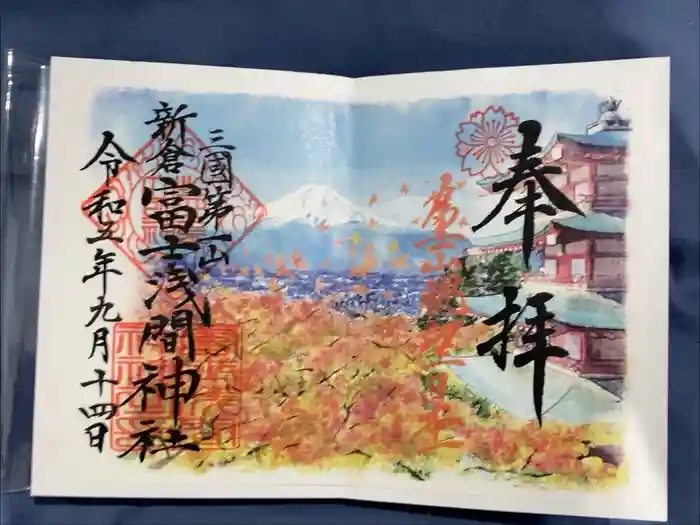 奉拝
三國第一山
新倉富士浅間神社
令和五年九月十四日